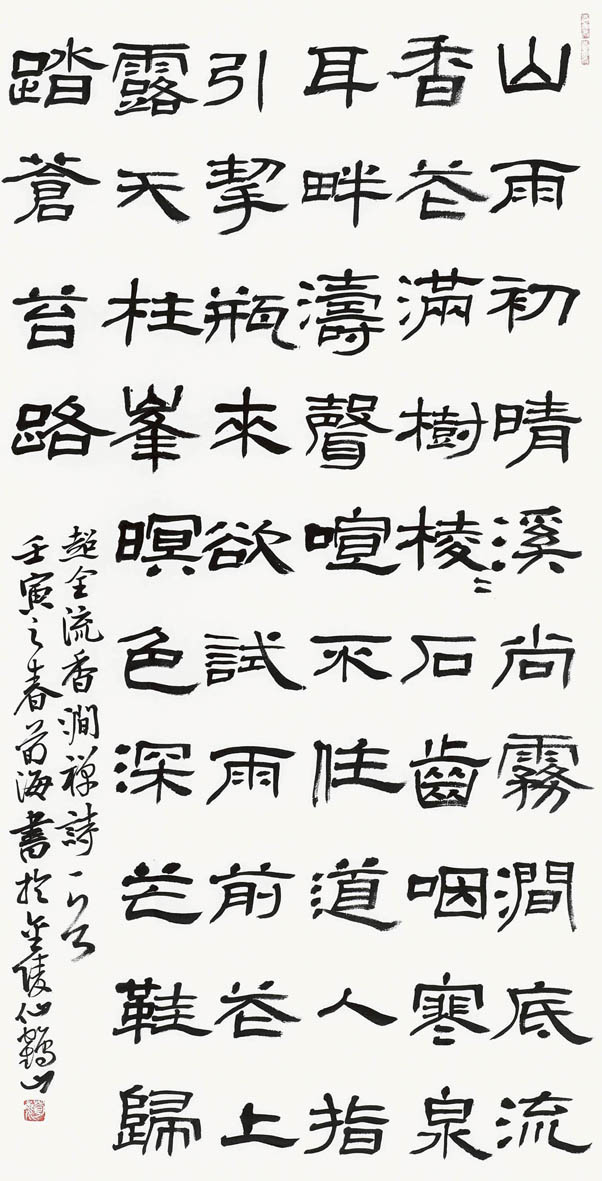 山雨初晴溪尚霧澗底流
香花滿樹棱〻石齒咽寒泉
耳畔濤聲喧不住道人指
引挈瓶來欲試雨前花上
露天柱峯暝色深芒鞋歸
踏蒼苔路
超全流香澗禪詩一首
壬寅之春海書於金陵仙鶴山